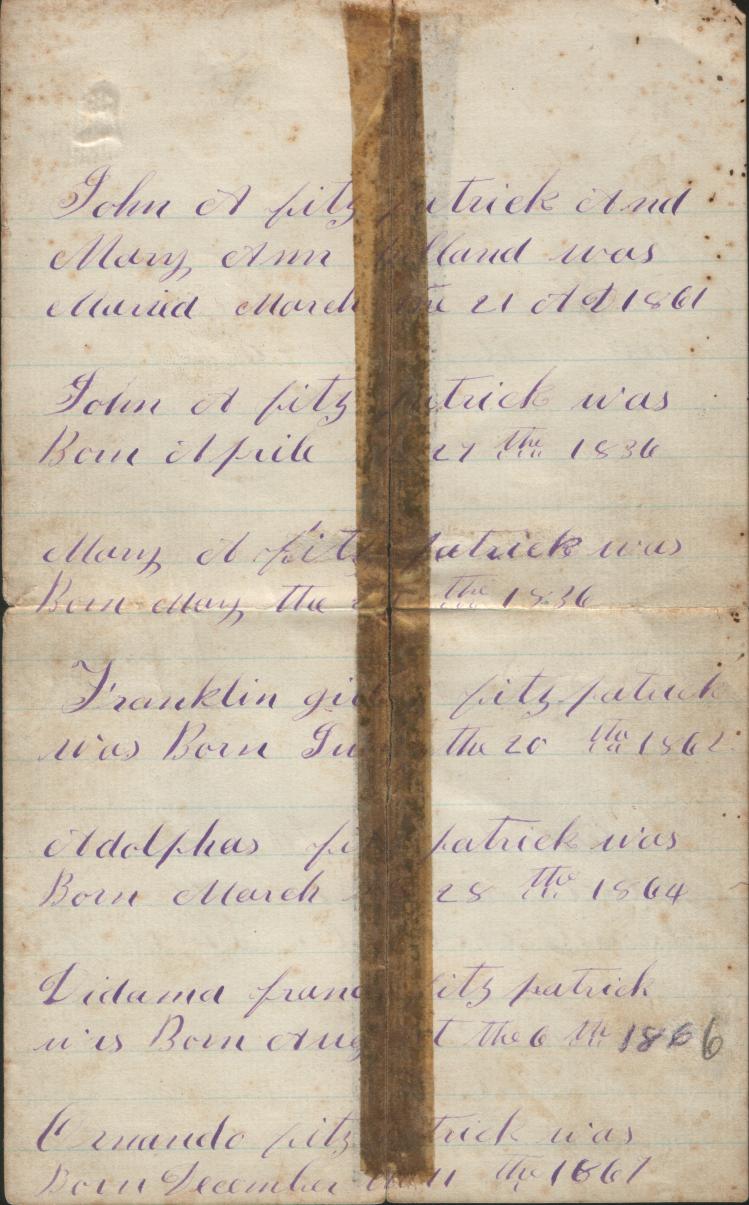 John A fitz patrick And
Mary Ann was
Maried March the 21 AD 1861
John A fitz patrick was
Born Aprile 27 the 1836
Mary A fitz patrick was
Born May the the 1836
Franklin fitz patrick
was Born the 20 the 1862
Adolphas patrick was
Born March 28 the 1864
Didama fitz patrick
was Born the 6 th 1866
fitz patrick was
Born December 11 the 1867